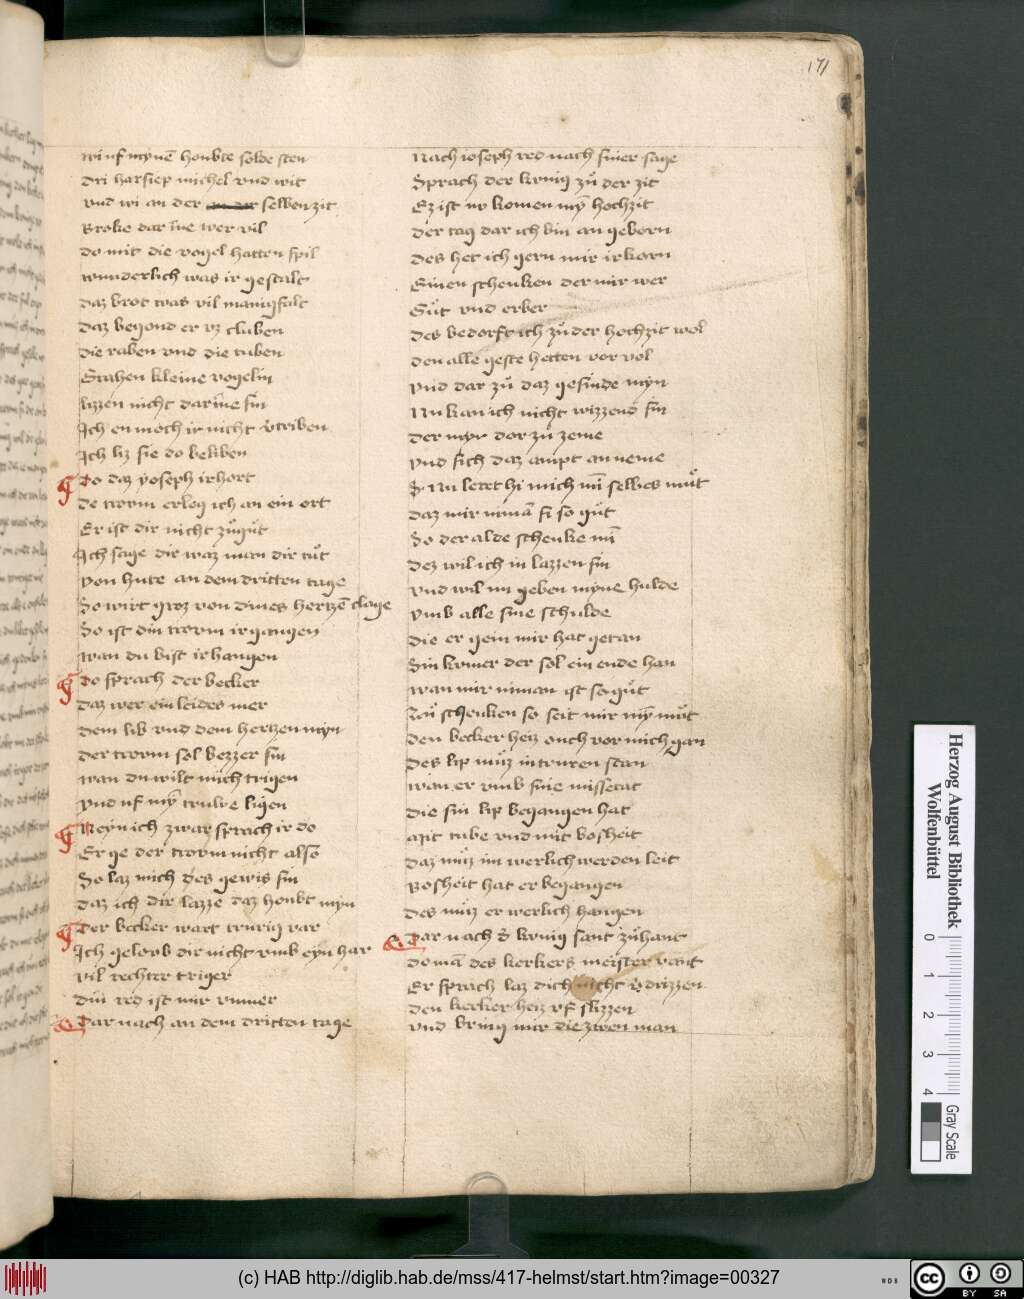 171
wi uf mynē houbte solde sten
dri harsiep michel vnd wit
vnd wi an der selben zit
Broke dar īne wer vil
do mit die vogel hatten spil
wunderlich was ir gestalt
daz brot was vil manigfalt
daz begond er vz cluben
die raben vnd die tuben
Strahen kleine vogelin
lizzen nicht darīne sin
Ich en moch ir nicht v̄triben
Ich liz sie do beliben
Do daz yoseph irhort
de trorm erleg ich an ein ort
Er ist dir nicht zuͦguͦt
Ich sage dir waz man dir tuͦt
von hute an dem dritten tage
So wirt groz von dines hertzē clage
So ist din trorm irgangen
wan du bist irhangen
Do sprach der becker
daz wer ein leides mer
dem lib vnd dem hertzen myn
der trorm sol bezzer sin
wan du wilt mich trigen
vnd uf my̅ truwe ligen
Neyn ich zwar sprach ir do
Er ge der trorm nicht also
So laz mich des gewis sin
daz ich dir lazze daz houbt myn
Der becker wart trurig var
Ich gelorb dir nicht vmb eyn har
vil rechter triger
din red ist mir vnmer
Dar nach an dem dritten tage
Nach ioseph red nach siner sage
Sprach der kvnig zuͦ der zit
Ez ist nv komen my̅ hochzit
der tag dar ich bin an geborn
des het ich gern mir irkorn
Einen schenken der mir wer
Guͦt vnd erber
des bedorft ich zuͦ der hochzit wol
den alle geste hetten vor vol
vnd dar zuͦ daz gesinde myn
Nu kan ich nicht wizzend sin
der myr dor zuͦ zeme
vnd sich daz ampt an neme
Nu leret hi mich mī selbes muͦt
daz mir nimā si so guͦt
So der alde schenke mī
dez wil ich in lazzen sin
vnd wil im geben myne hulde
vmb alle sine schulde
die er gein mir hat getan
Sin kvmer der sol ein ende han
wan mir niman ist so guͦt
Zuͦ schenken so seit mir my̅ muͦt
den becker heiz ouch vor mich gan
des lip muͦz in truren stan
wan er vmb sine missetat
die sin lip begangen hat
Mit tube vnd mit bosheit
daz muͦz im werlich werden leit
Bosheit hat er begangen
des muͦz er werlich hangen
Dar nach d̄ kvnig sant zuͦhant
do mā des kerkers meister vant
Er sprach laz dich nicht v̄drizzen
den kerker heiz vf slizzen
vnd bring mir die zwen man
Herzog August Bibliothek
Wolfenbüttel
0 1 2 3 4
Gray Scale
(c) HAB http://diglib.hab.de/mss/417-helmst/start.htm?image=00327
WDB
cc BY SA